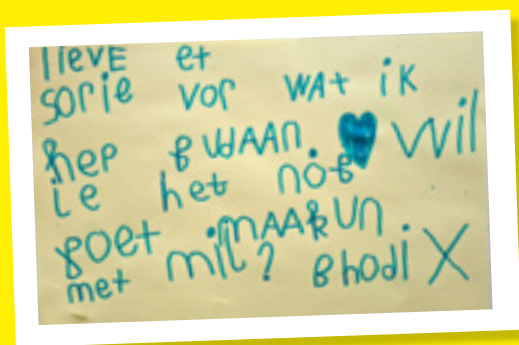 lieve et
sorie vor wat ik
hep gwaan. wil
ie het nog
goet maakun
met mil? Bhodi X